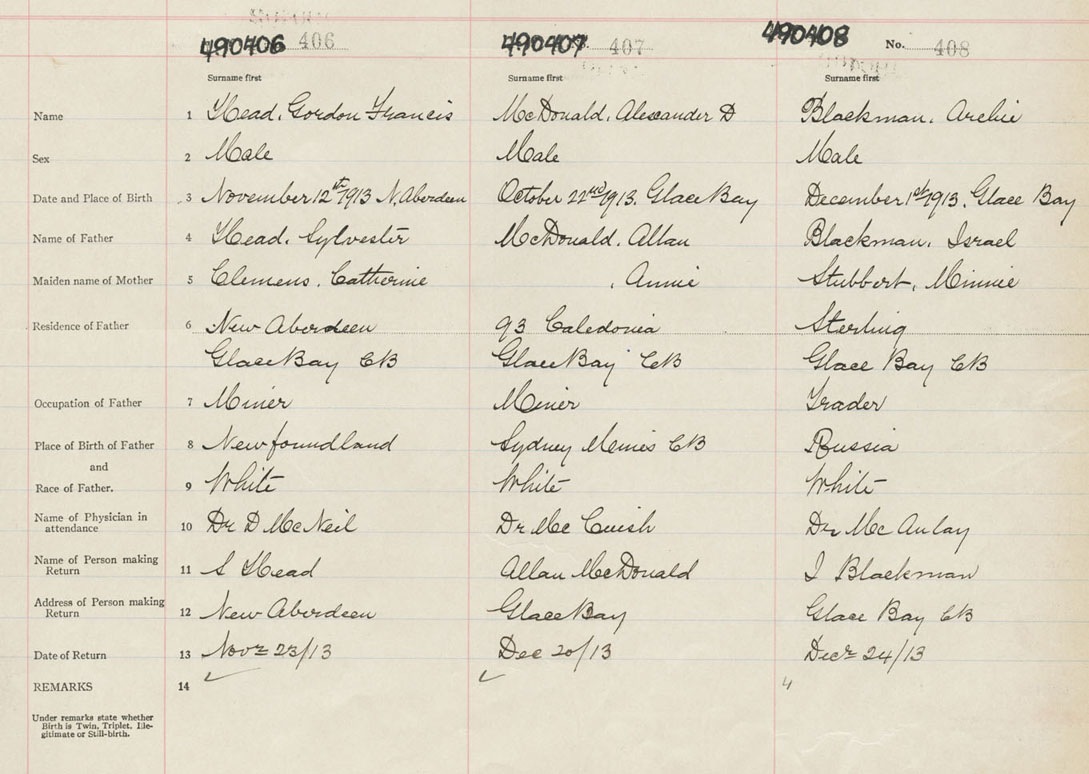 490406 406 490407 407 490408 No. 408
Surname first Surname first Surname first
Name 1 Head, Gordon Francis McDonald, Alexander D Blackman, Archie
Sex 2 Male Male Male
Date and Place of Birth 3 November 12th 1913 N. Aberdeen October 22nd 1913. Glace Bay December 1st 1913. Glace Bay
Name of Father 4 Head, Sylvester McDonald, Allan Blackman, Israel
Maiden name of Mother 5 Clemens, Catherine , Annie Stubbert, Minnie
Residence of Father 6 New Aberdeen 93 Caledonia Sterling
Glace Bay CB Glace Bay CB Glace Bay CB
Occupation of Father 7 Miner Miner Trader
Place of Birth of Father 8 Newfoundland Sydney Mines CB Russia
and
Race of Father. 9 White White White
Name of Physician in
attendance 10 Dr D McNeil Dr McCuish Dr McAulay
Name of Person making
Return 11 S Head Allan McDonald I Blackman
Address of Person making
Return 12 New Aberdeen Glace Bay Glace Bay CB
Date of Return 13 Novr 23/13 Dec 20/13 Decr 24/13
REMARKS 14
Under remarks state whether
Birth is Twin, Triplet, Ille-
gitimate or Still-birth.